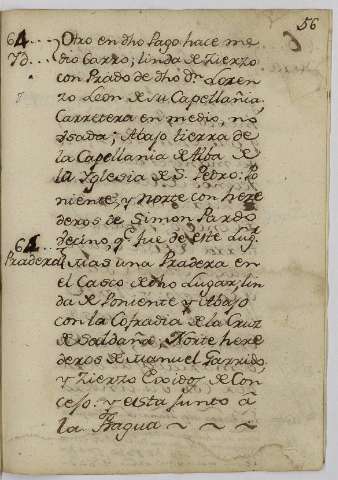 56
64... Otro en dho Pago hace me
7d... dio Carro; linda de Zierzo
con Prado de dho Dn. Loren
zo Leon de su Capellañia,
Carretera en medio, no
ssada; Abajo tierra de
la Capellania de Alba de
la Yglesia de S. Pedro: Po
niente, y norte con here
deros de Simon Pardo
Vezino, qe. fue de este Lugr.
Pradera Mas una Pradera en
el Casco de dho Lugar, lin
da de Poniente y Abajo
con la Cofradia de la Cruz
de Saldaña, Norte here
deros de Manuel Garrido,
y Zierzo Exidos de Con
cejo: y esta junto â
la Fragua ~ ~ ~ ~